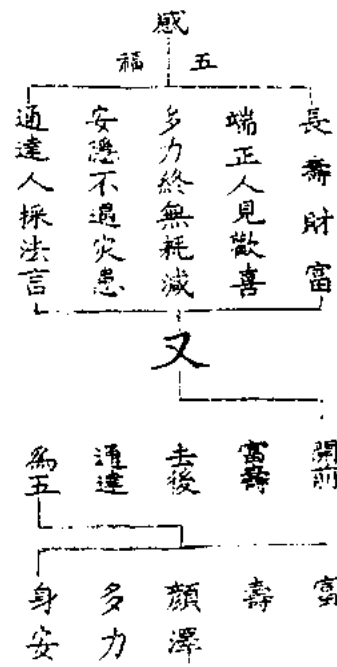 感
五福
長壽財富
端正人見歡喜
多力終無耗減
安隱不遇灾患
通達人採法言
又
開前
富壽
去後
通達
為五
富
壽
顏澤
多力
身安